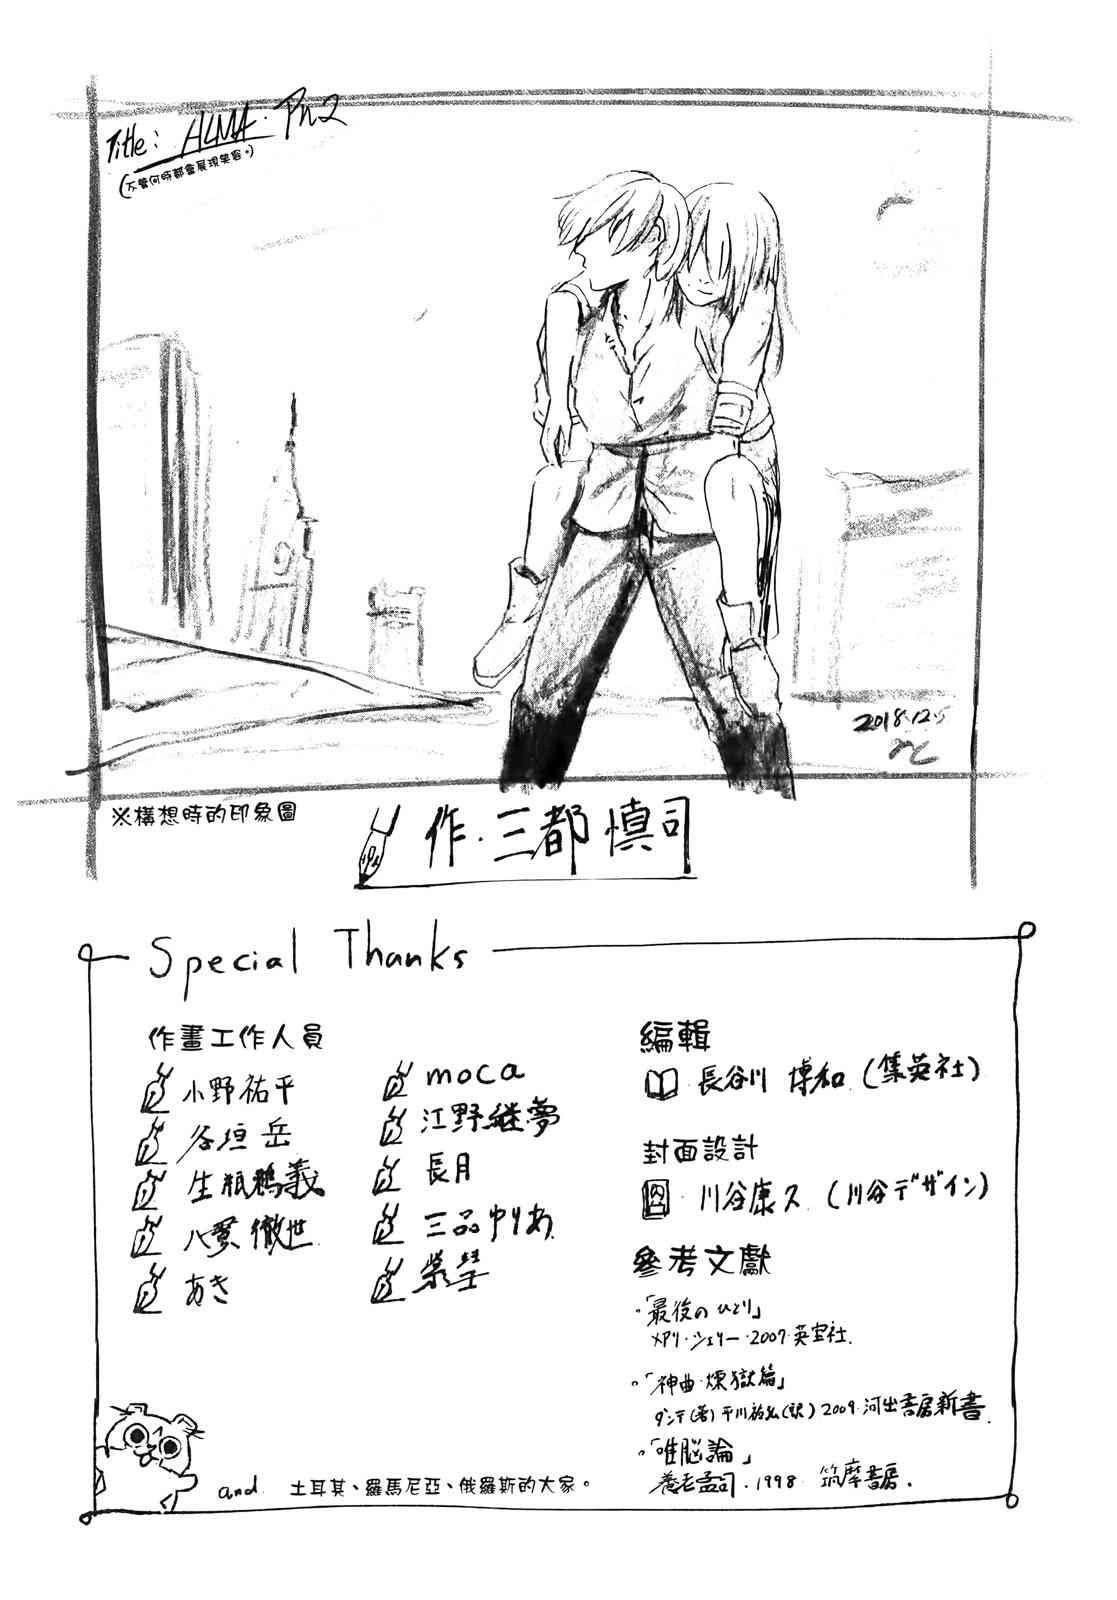 Title: ALMA. Ph2
(不管何時都會展現笑容。)
2018.12.5
※構想時的印象圖
作・三都慎司
Special Thanks
作畫工作人員
小野祐平
谷垣 岳
徹世
あき
moca
江野継夢
長月
三品ゆりあ
編輯
長谷川 博和 (集英社)
封面設計
川谷康久 (川谷デザイン)
參考文獻
・「最後のひとり」
メアリ・シェリー・2007・英宝社.
・「神曲・煉獄篇」
ダンテ(著)平川祐弘(訳)2009・河出書房新書.
・「唯脳論」
養老孟司・1998・筑摩書房.
and. 土耳其、羅馬尼亞、俄羅斯的大家。